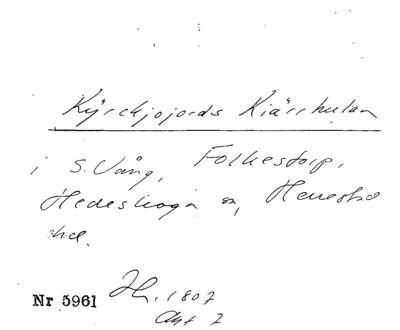 Kyrckjojords Kiärrhulan
i S. Vång, Folkestorp,
Hedeskoga sn, Herrestad
hd.
Nr 5961 H. 1807
Akt 7